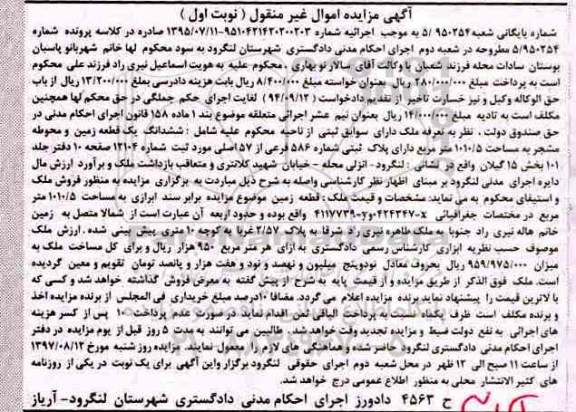 آگهی مزایده اموال غیر منقول ( نوبت اول )
شماره بایگانی شعبه ۹۵۰۲۵۴ /۵ به موجب اجرائیه شماره ۹۵۱۰۴۲۱۴۲۰۳۰۰۲۰۳-۱۳۹۵/۰۷/۱۱ صادره در کلاسه پرونده شماره
۵/۹۵۰۲۵۴ مطروحه در شعبه دوم اجرای احکام مدنی دادگستری شهرستان لنگرود به سود محکوم لها خانم شهربانو پاسبان
بوستان سادات محله فرزند شعبان با وکالت آقای سالار نوبهاری ، محکوم علیه به هویت اسماعیل نیری راد فرزند علی محکوم
است به پرداخت مبلغ ۲۸۰/۰۰۰/۰۰۰ ریال بعنوان خواسته مبلغ ۸/۴۰۰/۰۰۰ ریال بابت هزینه دادرسی بملغ ۱۳/۲۰۰/۰۰۰ ریال از باب
حق الوکاله وکیل و نیز خسارت تاخیر از تقدیم دادخواست ( ۹۴/۰۹/۱۲ ) لغایت اجرای حکم جملگی در حق محکم لها همچنین
مکلف است به تادیه مبلغ ۱۴/۰۰۰/۰۰۰ ریال بعنوان نیم عشر اجرائی متعلقه موضوع بند ۱ ماده ۱۵۸ قانون اجرای احکام مدنی در
حق صندوق دولت . نظر به تعرفه ملک دارای سوابق ثبتی از ناحیه محکوم علیه شامل : ششدانگ یک قطعه زمین و محوطه
مشجر به مساحت ۱۰۱۰/۵ متر مربع دارای پلاک ثبتی شماره ۵۸۶ فرعی از ۵۷ اصلی مورد ثبت شماره ۱۲۱۰۴ صفحه ۱۰ دفتر جلد
۱۰۱ بخش ۱۵ گیلان واقع در نشانی : لنگرود- انزلی محله - خیابان شهید کلانتری و متعاقب بازداشت ملک و برآورد ارزش مال
دایره اجرای مدنی لنگرود بر مبنای اظهار نظر کارشناسی واصله به شرح ذیل مبادرت به برگزاری مزایده به منظور فروش ملک
و استیفای محکوم به می نماید: مشخصات و قیمت ملک : قطعه زمین موضوع مزایده برابر سند ابرازی به مساحت ۱۰۱۰/۵ متر
مربع در مختصات جغرافیائی x-۴۲۴۳۴۷ و y-۴۱۱۷۷۳۹ واقع بوده و حدود اربعه آن عبارت است از شمالا متصل به زمین
خانم هاله نیری راد جنوبا به ملک طاهره نیری راد شرقا به پلاک ۲/۵۷ غربا به کوچه ۱۰ متری پیش بینی شده . ارزش ملک
موصوف حسب نظریه ابرازی کارشناس رسمی دادگستری به ازای هر متر مربع ۹۵۰ هزار ریال و برای کل مساحت ملک به
میزان ۹۵۹/۹۷۵/۰۰۰ ریال بحروف معادل نودوپنج میلیون و نهصد و نود و هفت هزار و پانصد تومان تقویم و معین گردیده
است. ملک فوق الذکر از طریق مزایده و از قیمت پایه به شرح از پیش گفته به معرض فروش گذاشته خواهد شد و کسی که
با لاترین قیمت را پیشنهاد نماید برنده مزایده اعلام می گردد. مضافا ۱۰درصد مبلغ خریداری فی المجلس از برنده مزایده اخذ
و برنده مکلف است ظرف یکماه نسبت به پرداخت الباقی ثمن اقدام نماید در صورت عدم پرداخت ۱۰ پس از کسر هزینه
های اجرائی به نفع دولت ضبط و مزایده تجدید وقت خواهد شد. طالبین می توانند به مدت ۵ روز قبل از یوم مزایده در دفتر
اجرای احکام مدنی دادگستری لنگرود حاضر شده وهماهنگی های لازم را معمول نمایند. مزایده روز شنبه مورخ ۱۳۹۷/۰۸/۱۲
از ساعت ۱۱ صبح الی ۱۲ ظهر در محل شعبه دوم اجرای حقوقی لنگرود برگزار واین آگهی برای یک نوبت در یکی از روزنامه
های کثیر الانتشار محلی به منظور اطلاع عمومی درج خواهد شد.
ح ۴۵۶۳ دادورز اجرای احکام مدنی دادگستری شهرستان لنگرود- آریاز